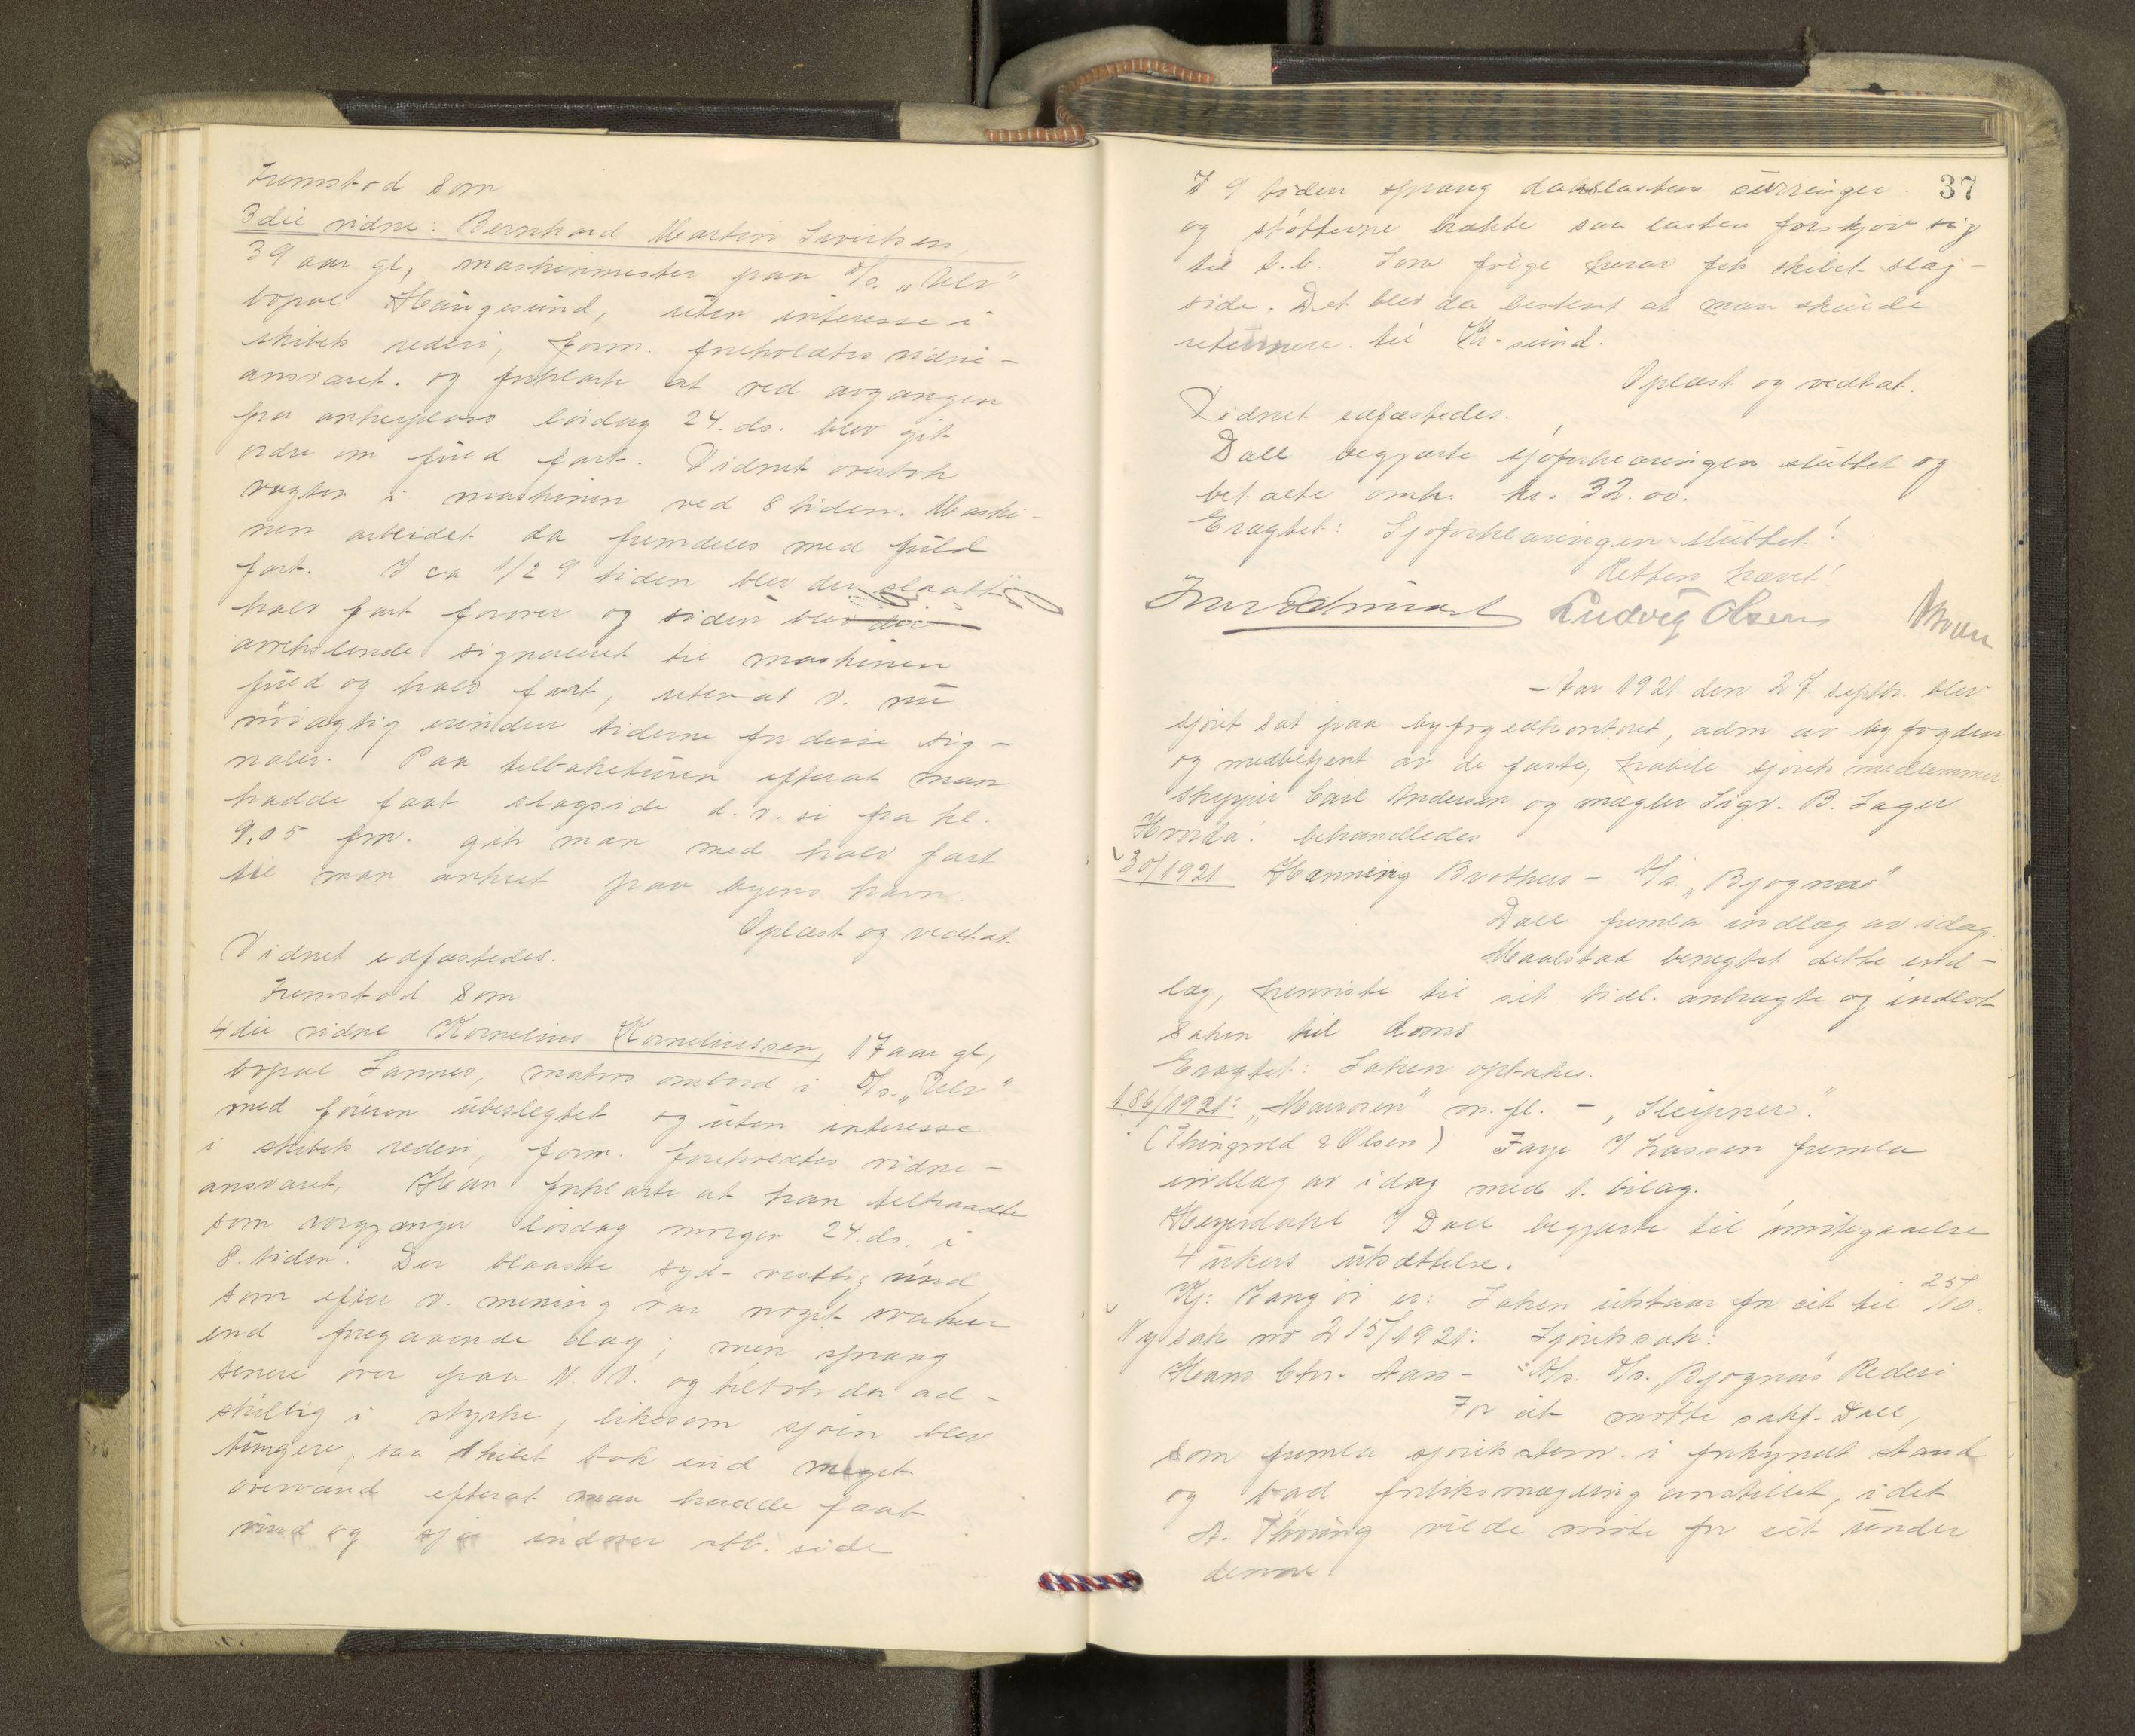 Fremstod som
3die vidne: Bernhard Martin Sivertsen,
39 aar gl, maskinmester paa D/s. "Alv"
bopæl Haugesund, uten interesse i
skibets rederi, form. foreholdtes vidne-
ansvaret. og forklarte at ved avgangen
fra ankerplass lördag 24. ds. blev git
ordre om fuld fart. Vidnet overtok
vagten i maskinen ved 8 tiden. Maski-
nen arbeidet da fremdeles med fuld
fart. I ca 1/2 9 tiden blev der slaatt
halv fart forover og siden blev der
avvekslende signaleret til maskinen
fuld og halv fart, uten at v. nu
nöiagtig erindrer tiderne for disse sig-
naler. Paa tilbaketuren efterat man
hadde faat slagside d.v.si fra kl.
9,05 fm. gik man med halv fart
til man ankret paa byens havn.
Oplæst og vedtat.
Vidnet edfæstedes.
Fremstod som
4die vidne Kornelius Korneliussen, 17 aar gl,
bopæl Sannes, matros ombord i D/s. "Alv"
med föreren ubeslegtet og uten interesse
i skibets rederi, form. foreholdtes vidne-
ansvaret. Han forklarte at han tiltraadte
som vorgjænger lördag morgen 24. ds. i
8. tiden. Der blaaste syd-vestlig vind
som efter v. mening var noget svakere
end foregaaende dag; men sprang
senere over paa N.V. og tiltok da ad-
skillig i styrke, likesom sjöen blev
tungere, saa skibet tok ind meget
overvand efterat man hadde faat
vind og sjö indover stb. side
37
I 9 tiden sprang dækslastens surringer
og stötterne brækte saa lasten forskjöv sig
til b.b. Som fölge herav fik skibet slag-
side. Det blev da bestemt at man skulde
returnere til Kr-sund.
Oplæst og vedtat.
Vidnet edfæstedes.
Dall begjærte sjöforklaringen sluttet og
betalte omk. kr. 32.00.
Eragtet: Sjöforklaringen sluttet!
Retten hævet!
Ludvig Olsen
Aar 1921 den 27. septbr. blev
sjöret sat paa byfogedkontoret, adm av byfogden
og medbetjent av de faste, habile sjörets medlemmer
skipper Carl Andersen og mægler Sigv. B. Sager
Hvorda: behandledes
30/1921 Hanning Brothers - A/s. "Bjogna"
Dall fremla indlæg av idag.
Maalstad benegtet dette ind-
læg, henviste til sit tidl. anbragte og indlot
saken til doms
Eragtet: Saken optakes.
186/1921: "Havörn" m.fl. - "Sleipner."
(Thingvold & Olsen) Faye f Lassen fremla
indlæg av idag med 1. bilag.
Heyerdahl f Dall begjærte til imötegaaelse
4 ukers utsættelse.
Kj: Saken utstaar for sit til 25/10.
Ny sak no 215/1921: Sjöretssak:
Hans Chr. Aass - A/s. D/s. "Bjognas" Rederi
For cit mötte sakf. Dall,
som fremla sjöretsstevn. i forkyndt stand
og bad forliksmægling anstillet, idet
A. Thring vilde möte for cit under
denne.